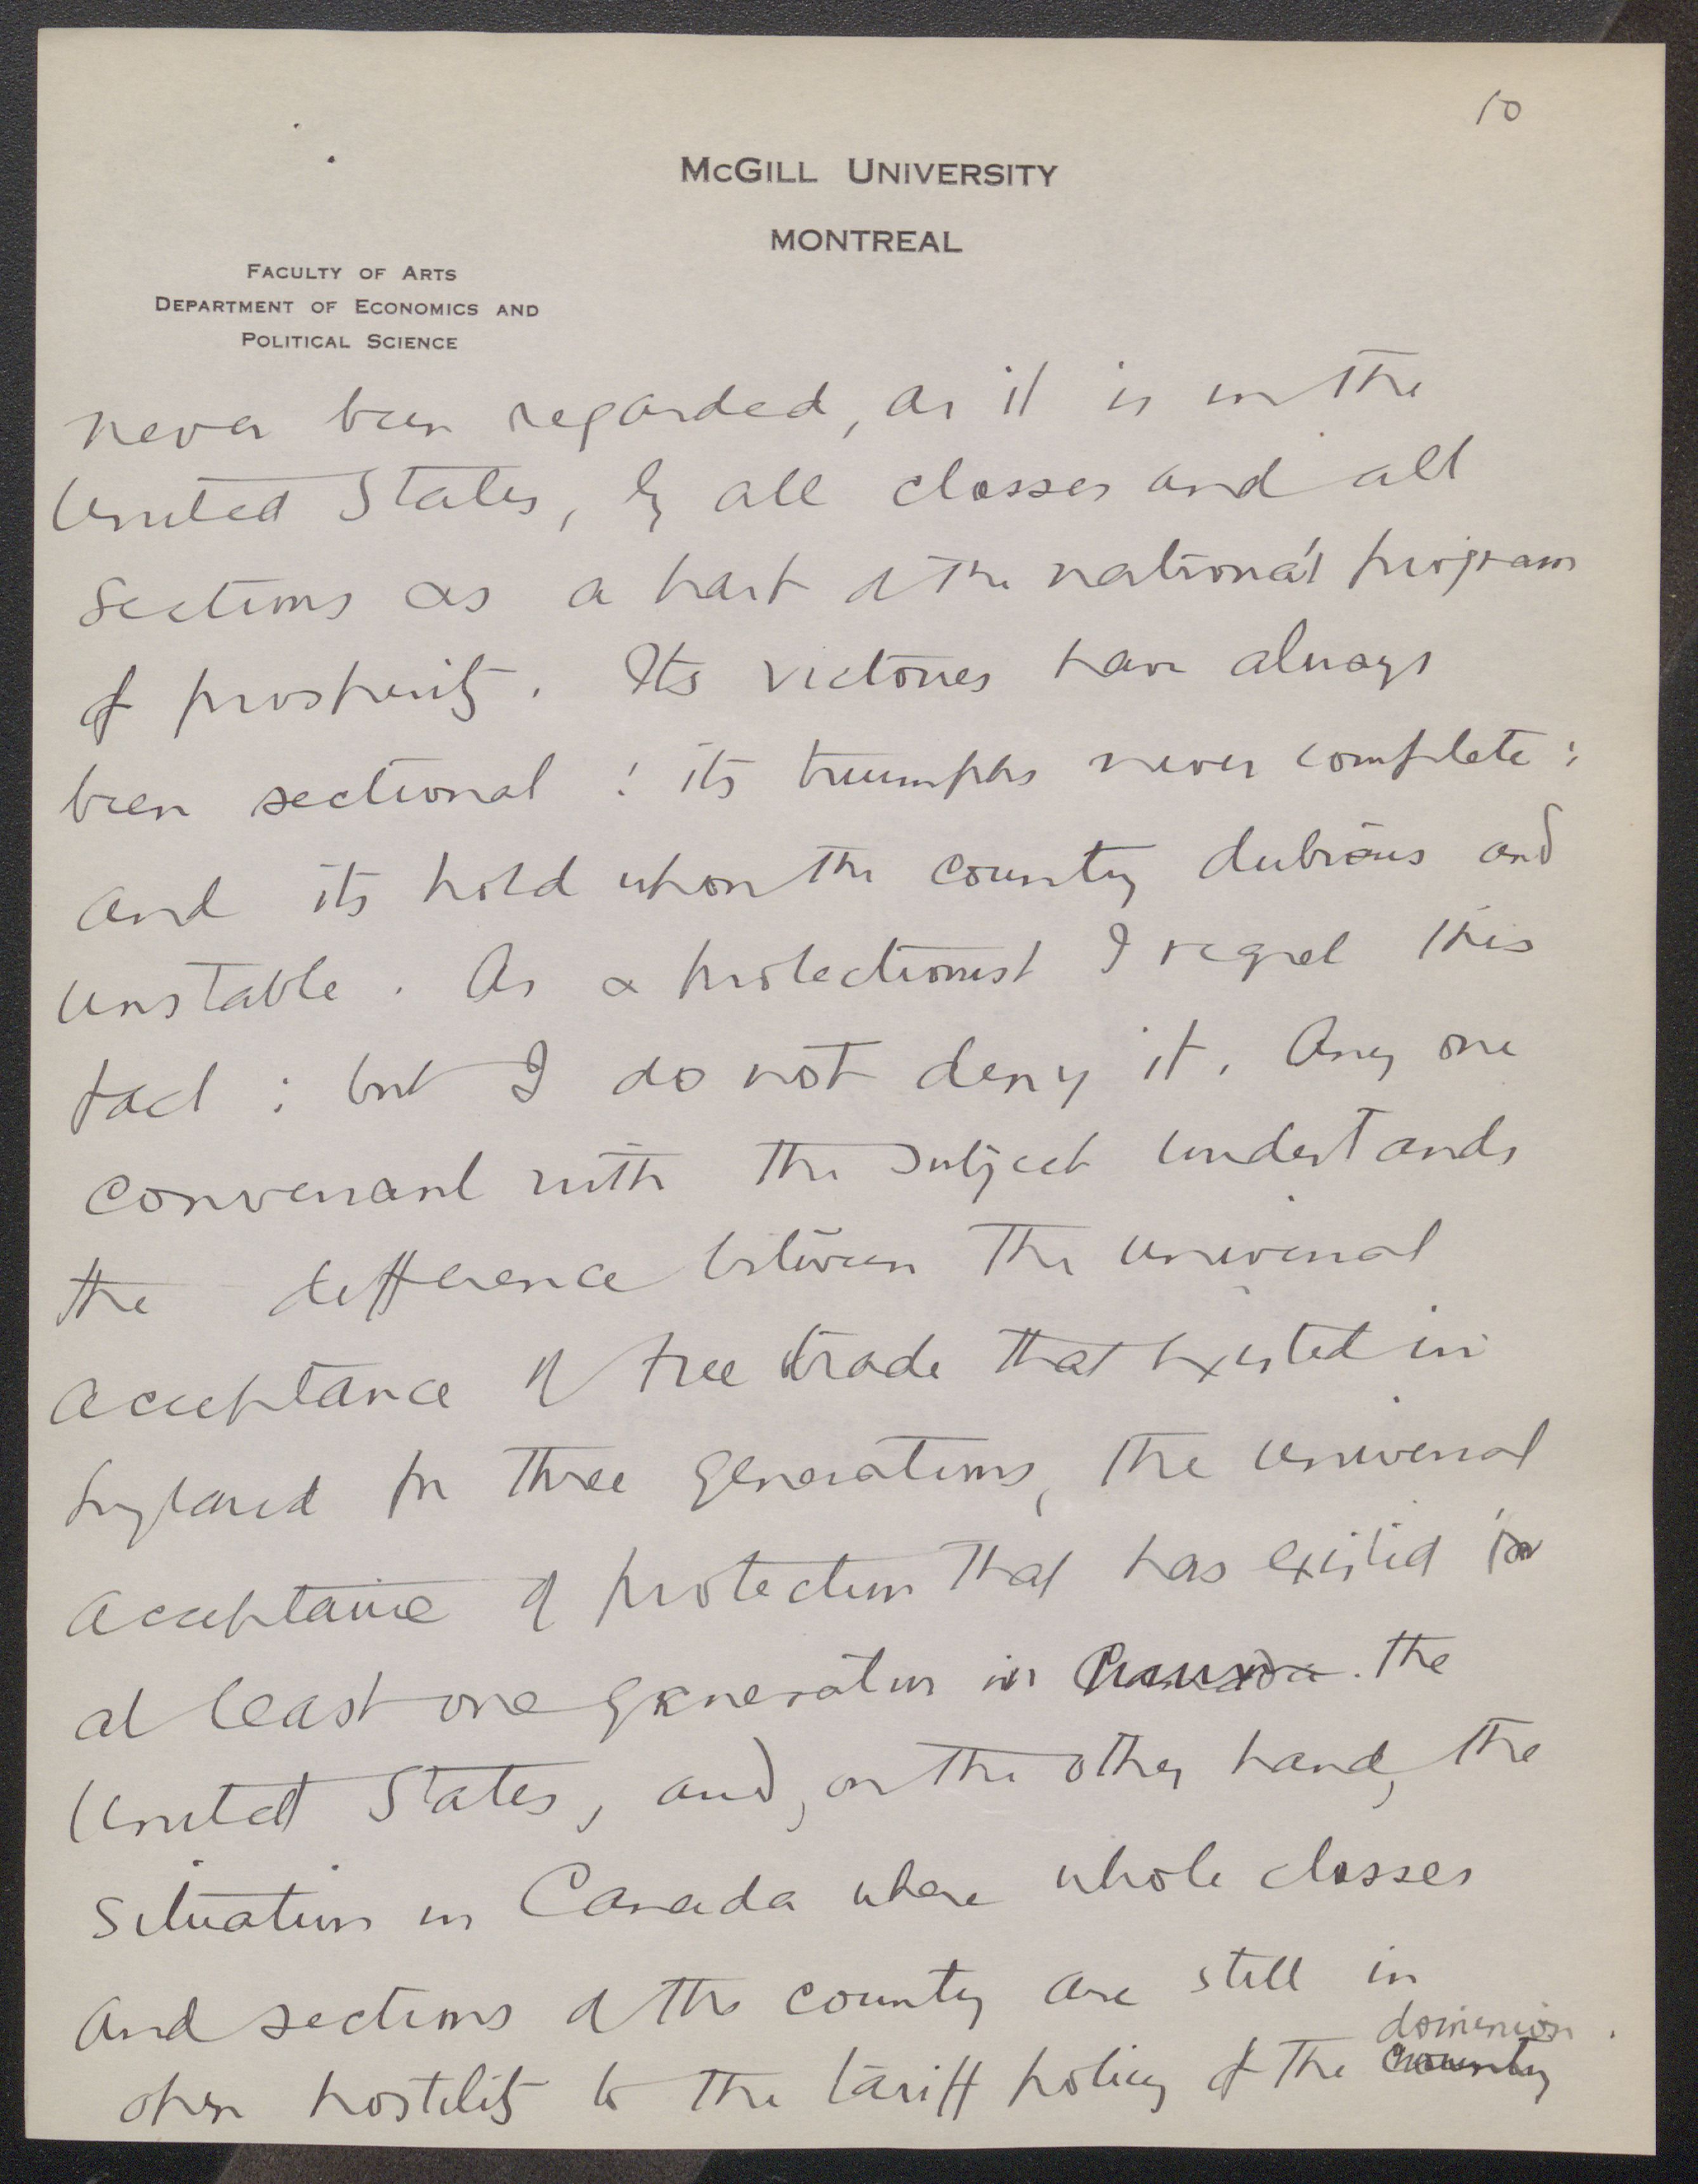 10
McGill University
MONTREAL
Faculty of Arts
Department of Economics and
Political Science
never been regarded, as it is in the
United States, by all classes and all
sections as a part of the national program
of prosperity. Its victories have always
been sectional : its triumphs never complete :
and its hold upon the country dubious and
unstable. As a protectionist I regret this
fact : but I do not deny it. Any one
conversant with the subject understands
the difference between the universal
acceptance of free trade that existed in
England for three generations, the universal
acceptance of protection that has existed in
at least one generation in Canada the
United States, and, on the other hand, the
situation in Canada where whole classes
and sections of the country are still in
dominion.
open hostility to the tariff policy of the country